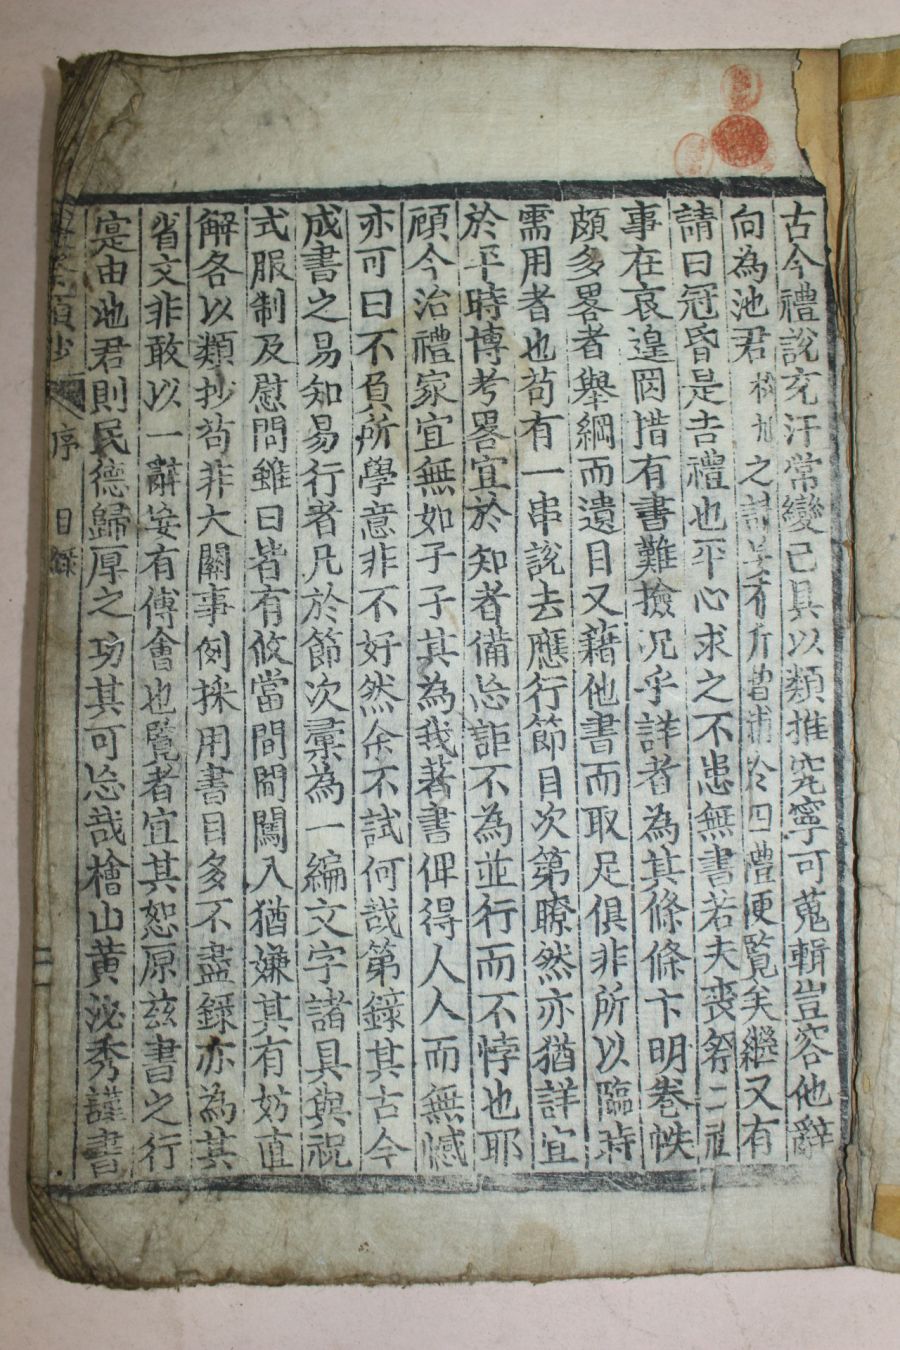 古今禮說充汗常變已具以類推究寧可蒐輯豈容他辭
向為池君之請於四禮便覽矣繼又有
請曰冠昏是吉禮也平心求之不患無書若夫喪祭二禮
事在哀遑罔措有書難撿況乎詳者為其條條卞明卷帙
頗多畧者舉綱而遺目又藉他書而取足俱非所以臨時
需用者也苟有一串說去應行節目次第瞭然亦猶詳宜
於平時博考畧宜於知者備忘詎不為並行而不悖也耶
顧今治禮家宜無如子子其為我著書俾得人人而無憾
亦可曰不負所學意非不好然余不試何哉第錄其古今
成書之易知易行者凡於節次彙為一編文字諸具與祝
式服制及慰問雖曰皆有攸當間間闖入猶嫌其有妨直
解各以類抄苟非大關事例採用書目多不盡錄亦為其
省文非敢以一辭妄有傅會也覽者宜其恕原茲書之行
寔由池君則民德歸厚之功其可忘哉檜山黃泌秀謹書
序 目錄